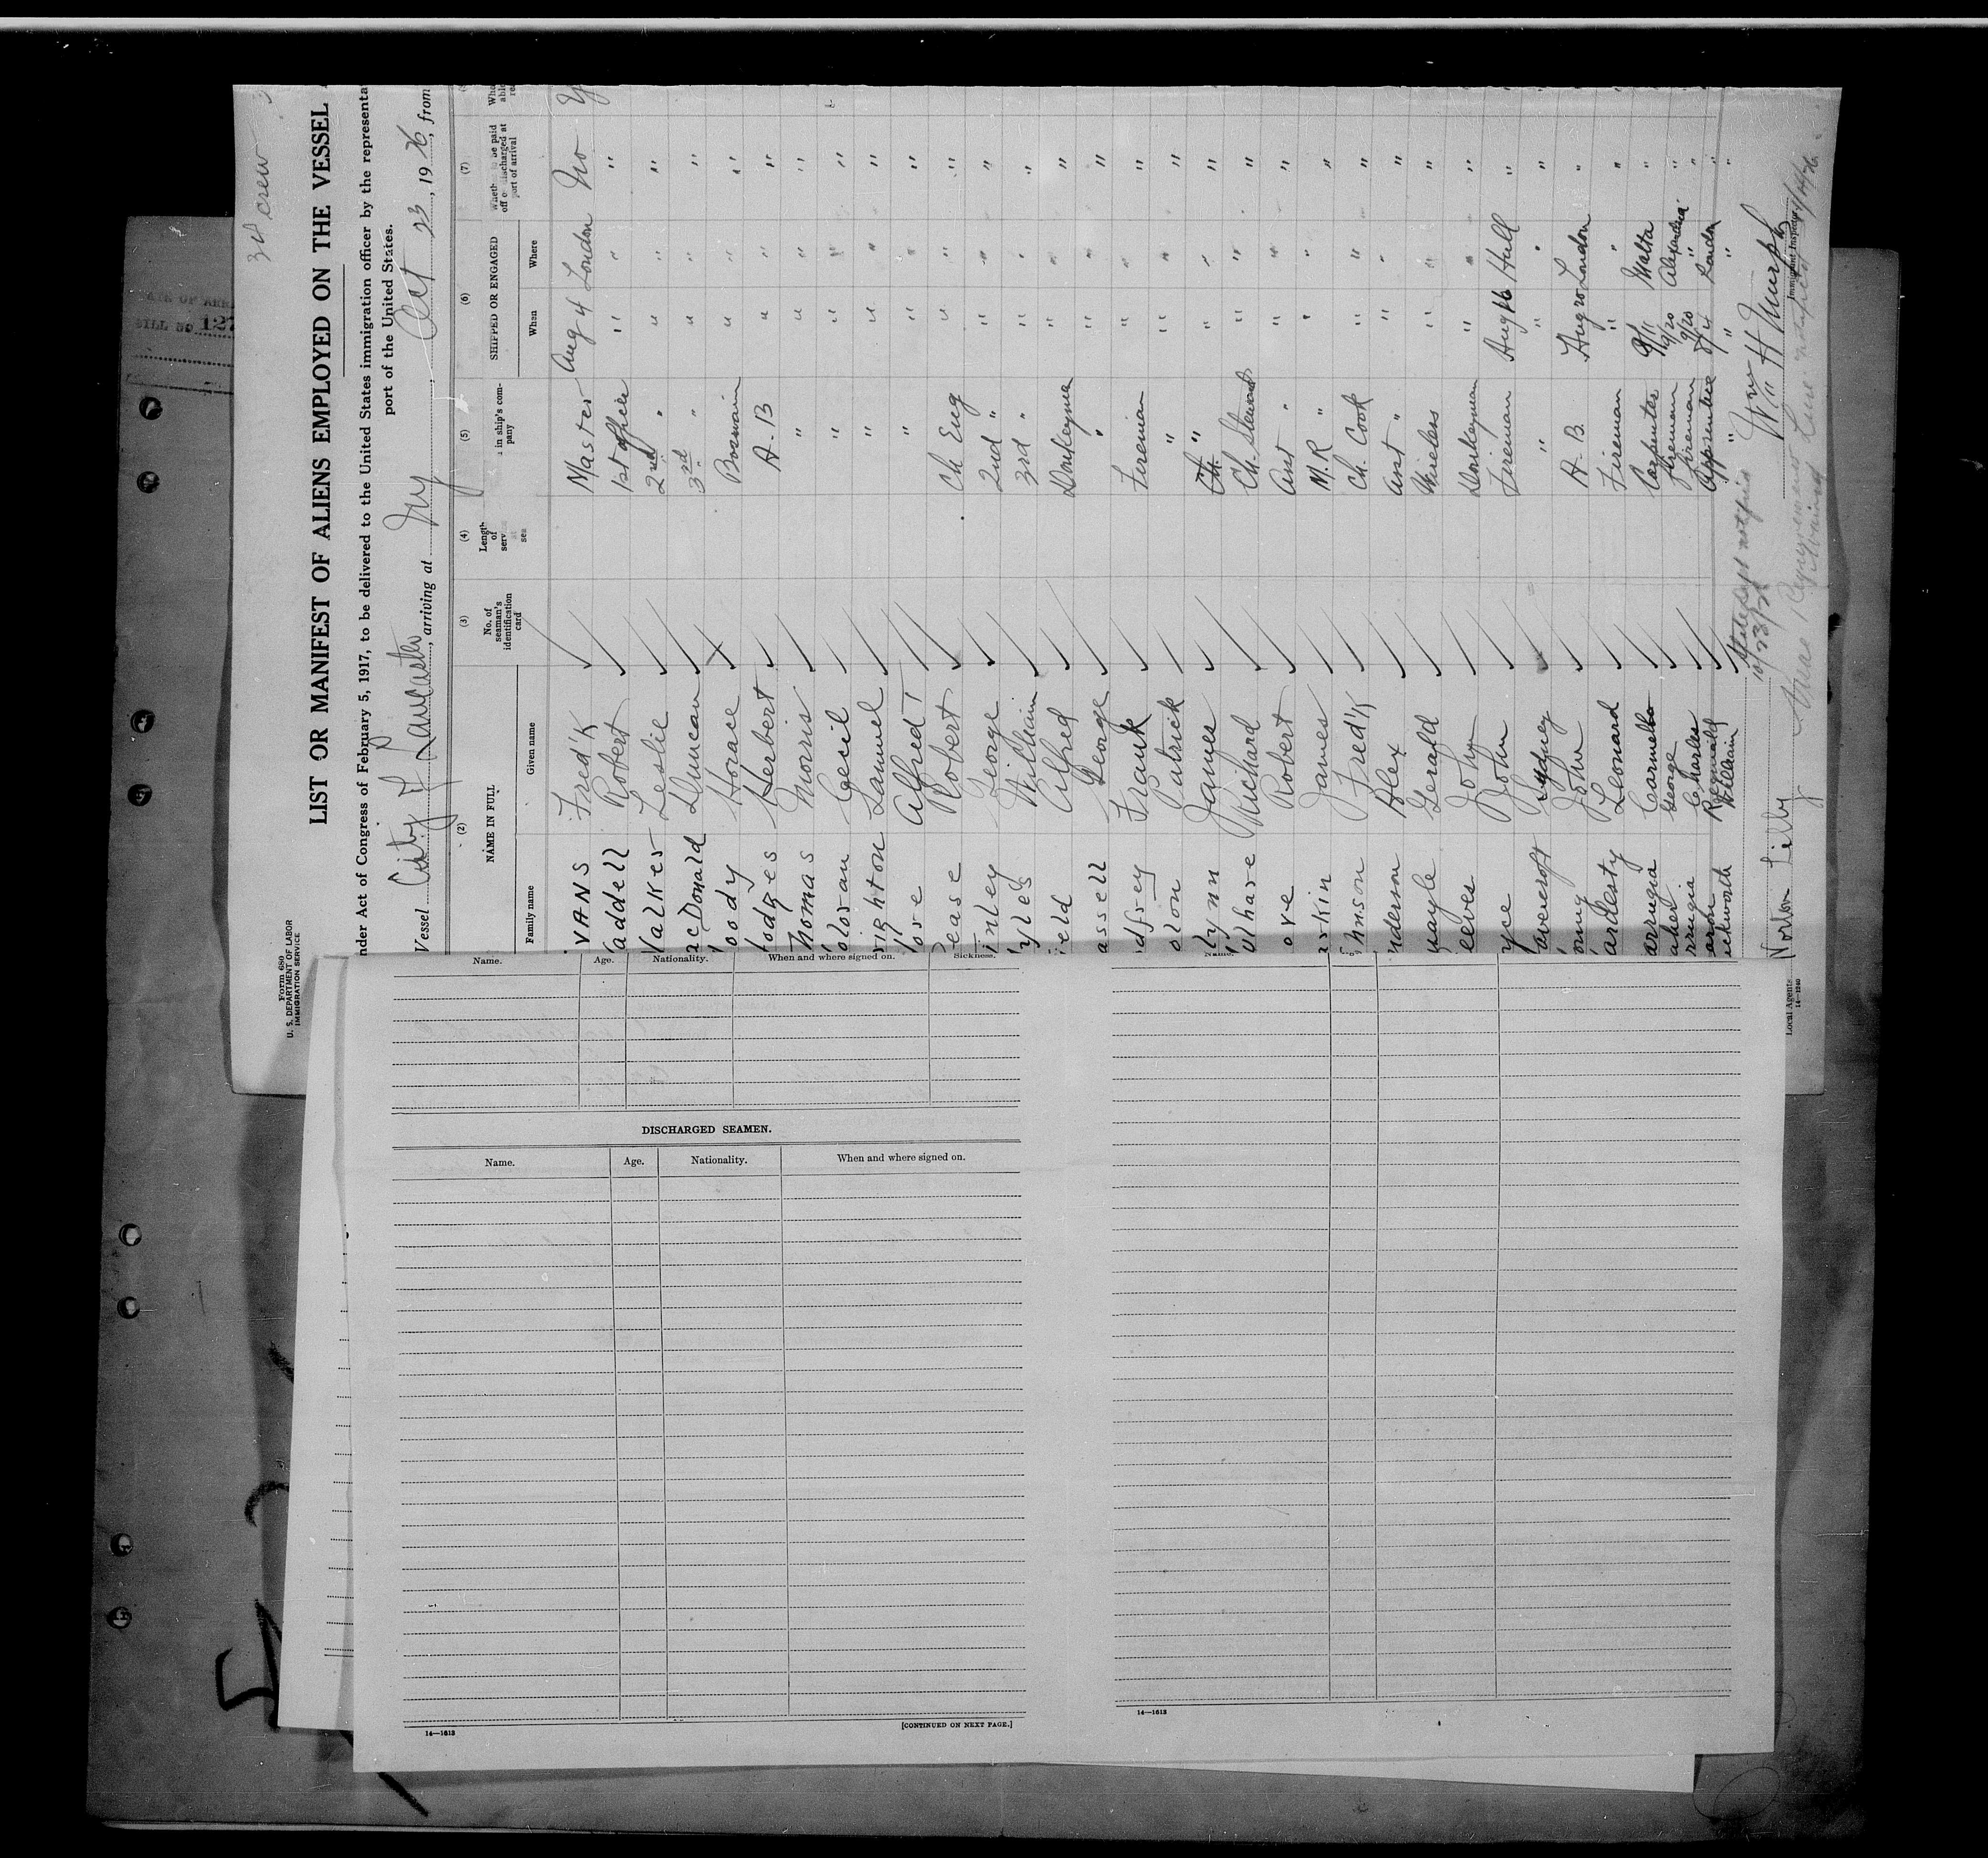 3rd crew
Form 680
U. S. DEPARTMENT OF LABOR
IMMIGRATION SERVICE
LIST OR MANIFEST OF ALIENS EMPLOYED ON THE VESSEL
nder Act of Congress of February 5, 1917, to be delivered to the United States immigration officer by the representa
port of the United States.
Vessel City of Lancaster, arriving at NY, Oct 23, 1926, from
(2) (3) (4) (5) (6) (7)
NAME IN FULL No. of seaman's identification card Length of serv at sea in ship's company SHIPPED OR ENGAGED Whether to be paid off or discharged at port of arrival
Family name Given name When Where
VANS Fred'k Master Aug 4 London No
addell Robert 1st officer " " "
alker Leslie 2nd " " " "
acDonald Duncan 3rd " " " "
oody Horace Boswain " " "
odges Herbert A.B " " "
homas Morris " " " "
oloran Cecil " " " "
righton Samuel " " " "
ose Alfred T " " " "
ease Robert Ch Eng " " "
inley George 2nd " " " "
yles William 3rd " " " "
ield Alfred Donkeyman " " "
assell George " " " "
dfrey Frank Fireman " " "
olon Patrick " " " "
lynn James " " " "
ulhare Richard Ch. Steward " " "
ove Robert Asst " " " "
arkin James M.R " " " "
hmson Fred'k Ch. Cook " " "
nderson Alex Asst " " " "
uayle Gerald Wireless " " "
eeves John Donkeyman " " "
yce John Fireman Aug 16 Hull "
avercroft Sydney " " " "
oung John A.B. Aug 20 London "
ardesty Leonard Fireman " " "
arrugia Carmelo Carpenter 9/11 Malta "
aher George Fireman 9/20 Alexandria "
rrugia Charles Fireman 9/20 " "
arson Reginald Apprentice 8/4 London "
uckworth William " " " "
10/23/26
Wm H Murphy
Immigrant Inspector
Norton Lilly
Local Agents
14—1240
DATE OF ARR
BILL NO 127
Name. Age. Nationality. When and where signed on. Sickness.
DISCHARGED SEAMEN.
Name. Age. Nationality. When and where signed on.
14—1613
[CONTINUED ON NEXT PAGE.]
Name.
14—1613